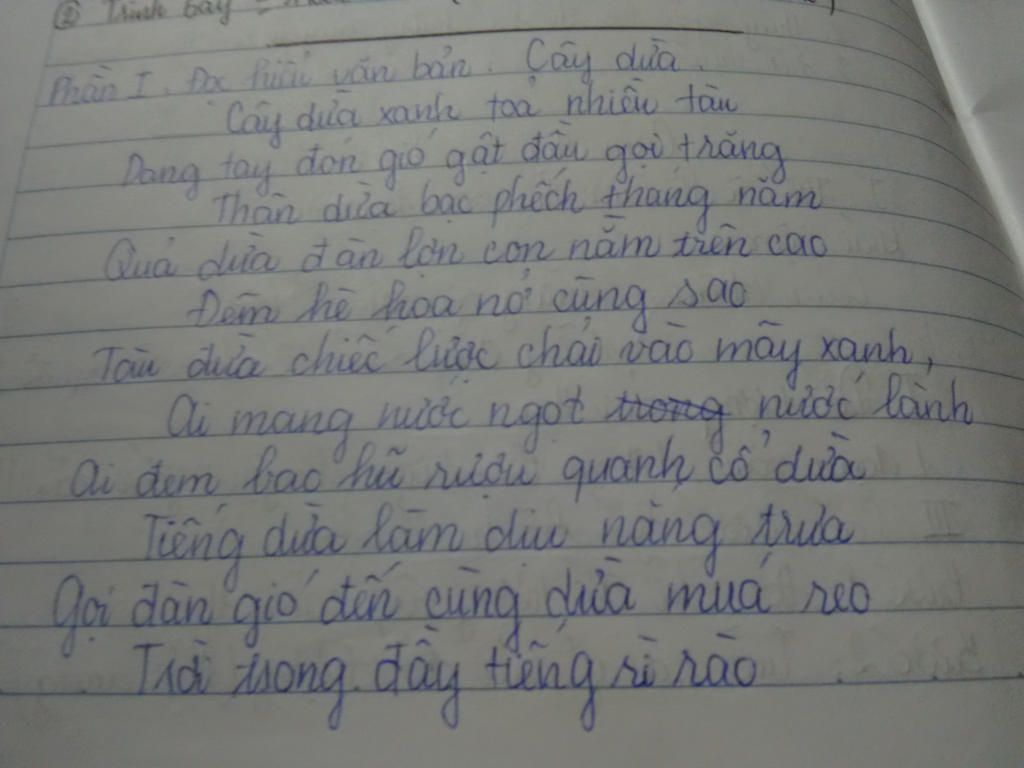 ② Trình bày
Phần I. Đọc hiểu văn bản. Cây dừa.
Cây dừa xanh toả nhiều tàu
Dang tay đón gió gật đầu gọi trăng
Thân dừa bạc phếch tháng năm
Quả dừa đàn lợn con nằm trên cao
Đêm hè hoa nở cùng sao
Tàu dừa chiếc lược chải vào mây xanh,
Ai mang nước ngọt trong nước lành
Ai đem bao hũ rượu quanh cổ dừa
Tiếng dừa làm dịu nắng trưa
Gọi đàn gió đến cùng dừa múa reo
Trời trong đầy tiếng rì rào